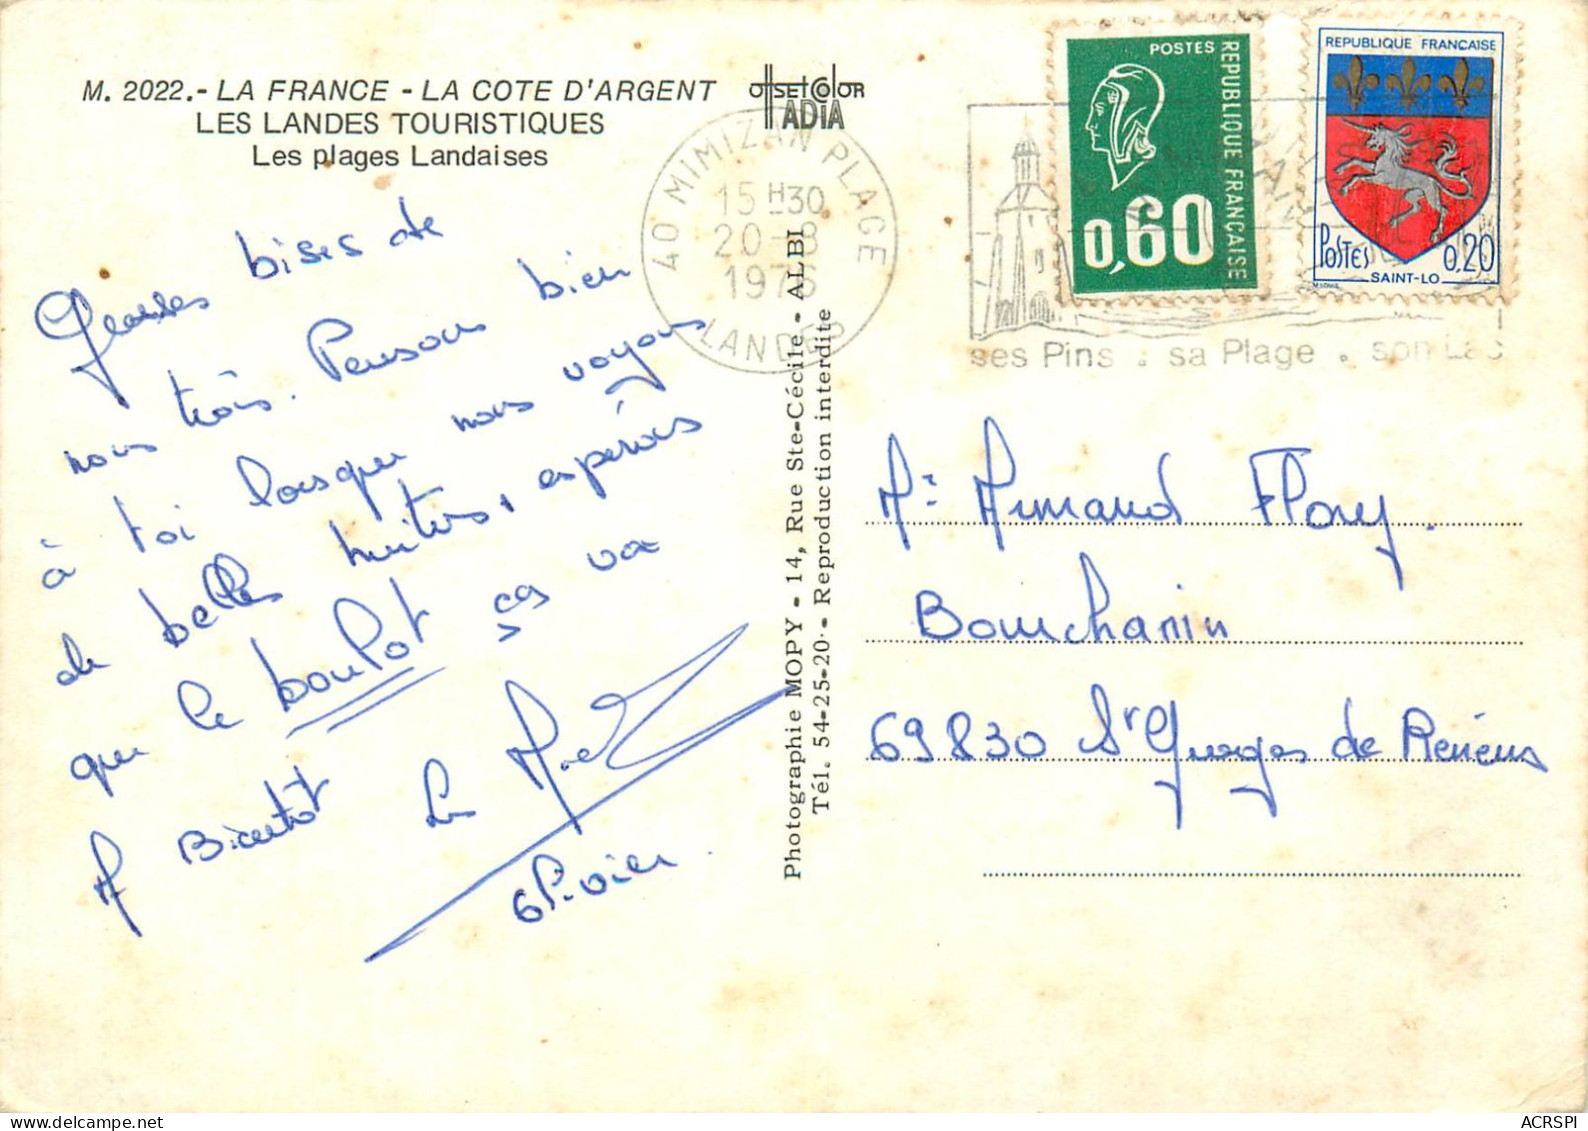 M. 2022.- LA FRANCE - LA COTE D'ARGENT
LES LANDES TOURISTIQUES
Les plages Landaises
OffsetColor
ADIA
40 MIMIZAN PLAGE
15 H 30
20 -8
1976
LANDES
POSTES
REPUBLIQUE FRANÇAISE
0,60
REPUBLIQUE FRANCAISE
POSTES 0,20
SAINT-LO
ses Pins . sa Plage . son Lac
Grosses bises de
nous trois. Pensons bien
à toi lorsque nous voyons
de belles huitres, espérons
que le boulot ça va
A Bientôt Les
Photographie MOPY - 14, Rue Ste-Cécile - ALBI
Tél. 54-25-20 - Reproduction interdite
Mr Armand Flory.
Bourchanin
69830 St Georges de Reneins
ACRSPI